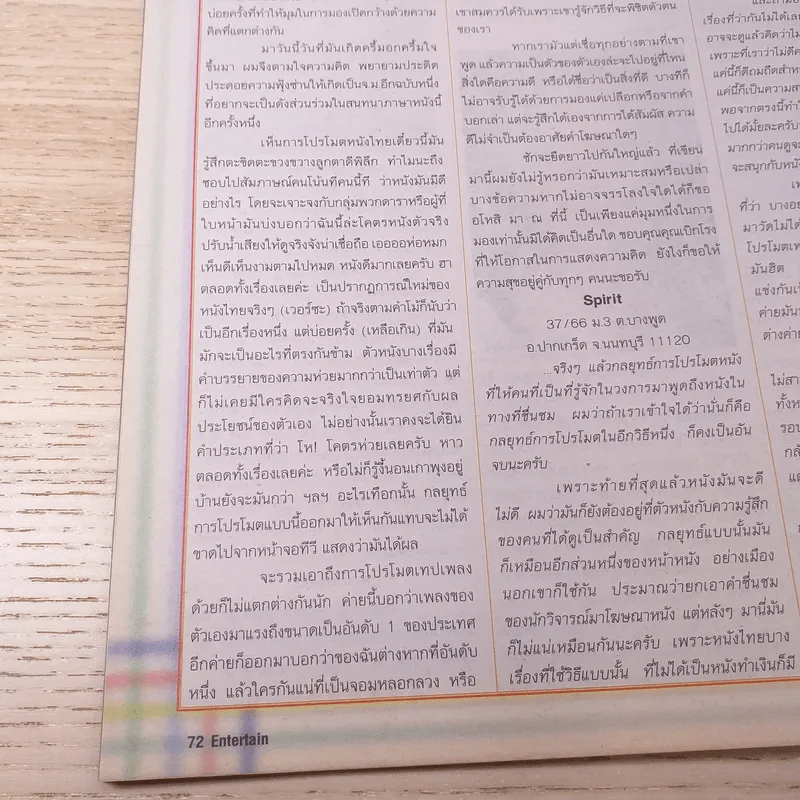 บ่อยครั้งที่ทำให้มุมในการมองเปิดกว้างด้วยความ
คิดที่แตกต่างกัน
มาวันนี้วันที่มันเกิดครึ้มอกครึ้มใจ
ขึ้นมา ผมจึงตามใจความคิด พยายามประดิด
ประดอยความฟุ้งซ่านให้เกิดเป็นจ.ม.อีกฉบับหนึ่ง
ที่อยากจะเป็นดังส่วนร่วมในสนทนาภาษาหนังนี้
อีกครั้งหนึ่ง
เห็นการโปรโมตหนังไทยเดี๋ยวนี้มัน
รู้สึกตะขิดตะขวงขวางลูกตาดีพิลึก ทำไมนะถึง
ชอบไปสัมภาษณ์คนโน้นทีคนนี้ที ว่าหนังมันมีดี
อย่างไร โดยจะเจาะจงกับกลุ่มพวกดาราหรือผู้ที่
ใบหน้ามันบ่งบอกว่าฉันนี้ล่ะโคตรหนังตัวจริง
ปรับน้ำเสียงให้ดูจริงจังน่าเชื่อถือ เออออห่อหมก
เห็นดีเห็นงามตามไปหมด หนังดีมากเลยครับ ฮา
ตลอดทั้งเรื่องเลยค่ะ เป็นปรากฏการณ์ใหม่ของ
หนังไทยจริงๆ (เวอร์ซะ) ถ้าจริงตามคำโม้ก็นับว่า
เป็นอีกเรื่องหนึ่ง แต่บ่อยครั้ง (เหลือเกิน) ที่มัน
มักจะเป็นอะไรที่ตรงกันข้าม ตัวหนังบางเรื่องมี
คำบรรยายของความห่วยมากกว่าเป็นเท่าตัว แต่
ก็ไม่เคยมีใครคิดจะจริงใจยอมทรยศกับผล
ประโยชน์ของตัวเอง ไม่อย่างนั้นเราคงจะได้ยิน
คำประเภทที่ว่า โห! โคตรห่วยเลยครับ หาว
ตลอดทั้งเรื่องเลยค่ะ หรือไม่ก็รู้งี้นอนเกาพุงอยู่
บ้านยังจะมันกว่า ฯลฯ อะไรเทือกนั้น กลยุทธ์
การโปรโมตแบบนี้ออกมาให้เห็นกันแทบจะไม่ได้
ขาดไปจากหน้าจอทีวี แสดงว่ามันได้ผล
จะรวมเอาถึงการโปรโมตเทปเพลง
ด้วยก็ไม่แตกต่างกันนัก ค่ายนี้บอกว่าเพลงของ
ตัวเองมาแรงถึงขนาดเป็นอันดับ 1 ของประเทศ
อีกค่ายก็ออกมาบอกว่าของฉันต่างหากที่อันดับ
หนึ่ง แล้วใครกันแน่ที่เป็นจอมหลอกลวง หรือ
เขาสมควรได้รับเพราะเขารู้จักวิธีที่จะพิชิตตัวตน
ของเรา
หากเรามัวแต่เชื่อทุกอย่างตามที่เขา
พูด แล้วความเป็นตัวของตัวเองล่ะจะไปอยู่ที่ไหน
สิ่งใดคือความดี หรือได้ชื่อว่าเป็นสิ่งที่ดี บางทีก็
ไม่อาจรับรู้ได้ด้วยการมองแค่เปลือกหรือจากคำ
บอกเล่า แต่จะรู้สึกได้เองจากการได้สัมผัส ความ
ดีไม่จำเป็นต้องอาศัยคำโฆษณาใดๆ
ชักจะยืดยาวไปกันใหญ่แล้ว ที่เขียน
มานี้ผมยังไม่รู้หรอกว่ามันเหมาะสมหรือเปล่า
บางข้อความหากไม่อาจจรรโลงใจใดได้ก็ขอ
อโหสิ มา ณ ที่นี้ เป็นเพียงแค่มุมหนึ่งในการ
มองเท่านั้นมิได้คิดเป็นอื่นใด ขอบคุณคุณเบิกโรง
ที่ให้โอกาสในการแสดงความคิด ยังไงก็ขอให้
ความสุขอยู่คู่กับทุกๆ คนนะขอรับ
Spirit
37/66 ม.3 ต.บางพูด
อ.ปากเกร็ด จ.นนทบุรี 11120
...จริงๆ แล้วกลยุทธ์การโปรโมตหนัง
ที่ให้คนที่เป็นที่รู้จักในวงการมาพูดถึงหนังใน
ทางที่ชื่นชม ผมว่าถ้าเราเข้าใจได้ว่านั่นก็คือ
กลยุทธ์การโปรโมตในอีกวิธีหนึ่ง ก็คงเป็นอัน
จบนะครับ
เพราะท้ายที่สุดแล้วหนังมันจะดี
ไม่ดี ผมว่ามันก็ยังต้องอยู่ที่ตัวหนังกับความรู้สึก
ของคนที่ได้ดูเป็นสำคัญ กลยุทธ์แบบนั้นมัน
ก็เหมือนอีกส่วนหนึ่งของหน้าหนัง อย่างเมือง
นอกเขาก็ใช้กัน ประมาณว่ายกเอาคำชื่นชม
ของนักวิจารณ์มาโฆษณาหนัง แต่หลังๆ มานี่มัน
ก็ไม่แน่เหมือนกันนะครับ เพราะหนังไทยบาง
เรื่องที่ใช้วิธีแบบนั้น ที่ไม่ได้เป็นหนังทำเงินก็มี
72 Entertain